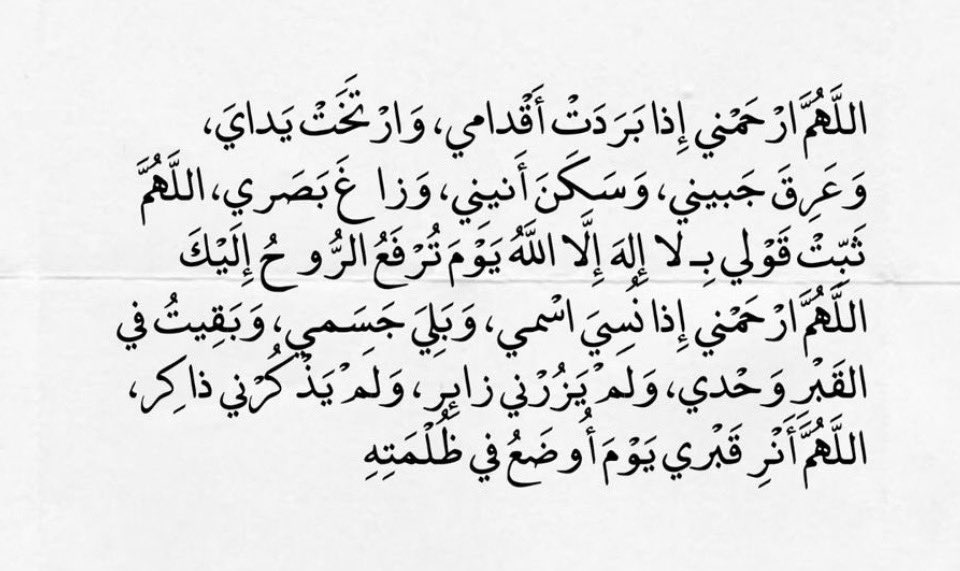 اللَّهُمَّ ارْحَمْني إِذا بَرَدَتْ أَقْدامي، وَارْتَخَتْ يَدايَ،
وَعَرِقَ جَبيني، وَسَكَنَ أَنيني، وَزاغَ بَصَري، اللَّهُمَّ
ثَبِّتْ قَوْلي بِـ لا إِلهَ إِلَّا اللَّهُ يَوْمَ تُرْفَعُ الرُّوحُ إِلَيْكَ
اللَّهُمَّ ارْحَمْني إِذا نُسِيَ اسْمي، وَبَلِيَ جَسِمي، وَبَقِيتُ في
القَبْرِ وَحْدي، وَلَمْ يَزُرْني زايِر، وَلَمْ يَذْكُرْني ذاكِر،
اللَّهُمَّ أَنْرِ قَبْري يَوْمَ أُوضَعُ في ظُلْمَتِهِ